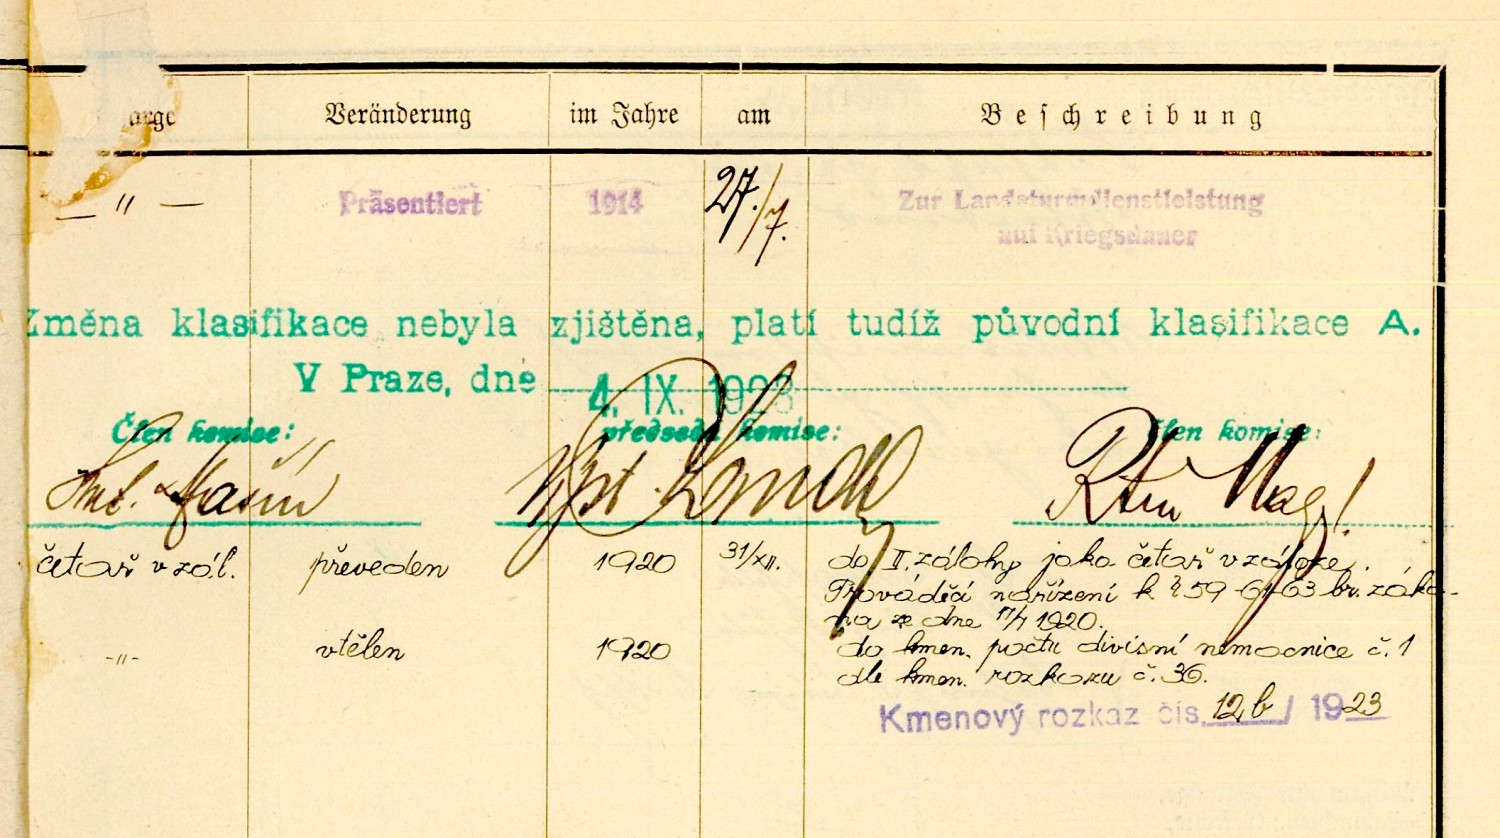 Veränderung im Jahre am Beschreibung
— " — Präsentiert 1914 27./7. Zur Landsturmdienstleistung
auf Kriegsdauer
Změna klasifikace nebyla zjištěna, platí tudíž původní klasifikace A.
V Praze, dne 4. IX. 1923
Člen komise: předseda komise: člen komise:
četař v zál. převeden 1920 31/XII. do II. zálohy jako četař v záloze.
Prováděcí nařízení k § 59-61-63 br. záko-
na ze dne 1920.
-"- vtělen 1920 do kmen. počtu divisní nemocnice č. 1
dle kmen. rozkazu č. 36.
Kmenový rozkaz čís. 12b / 1923